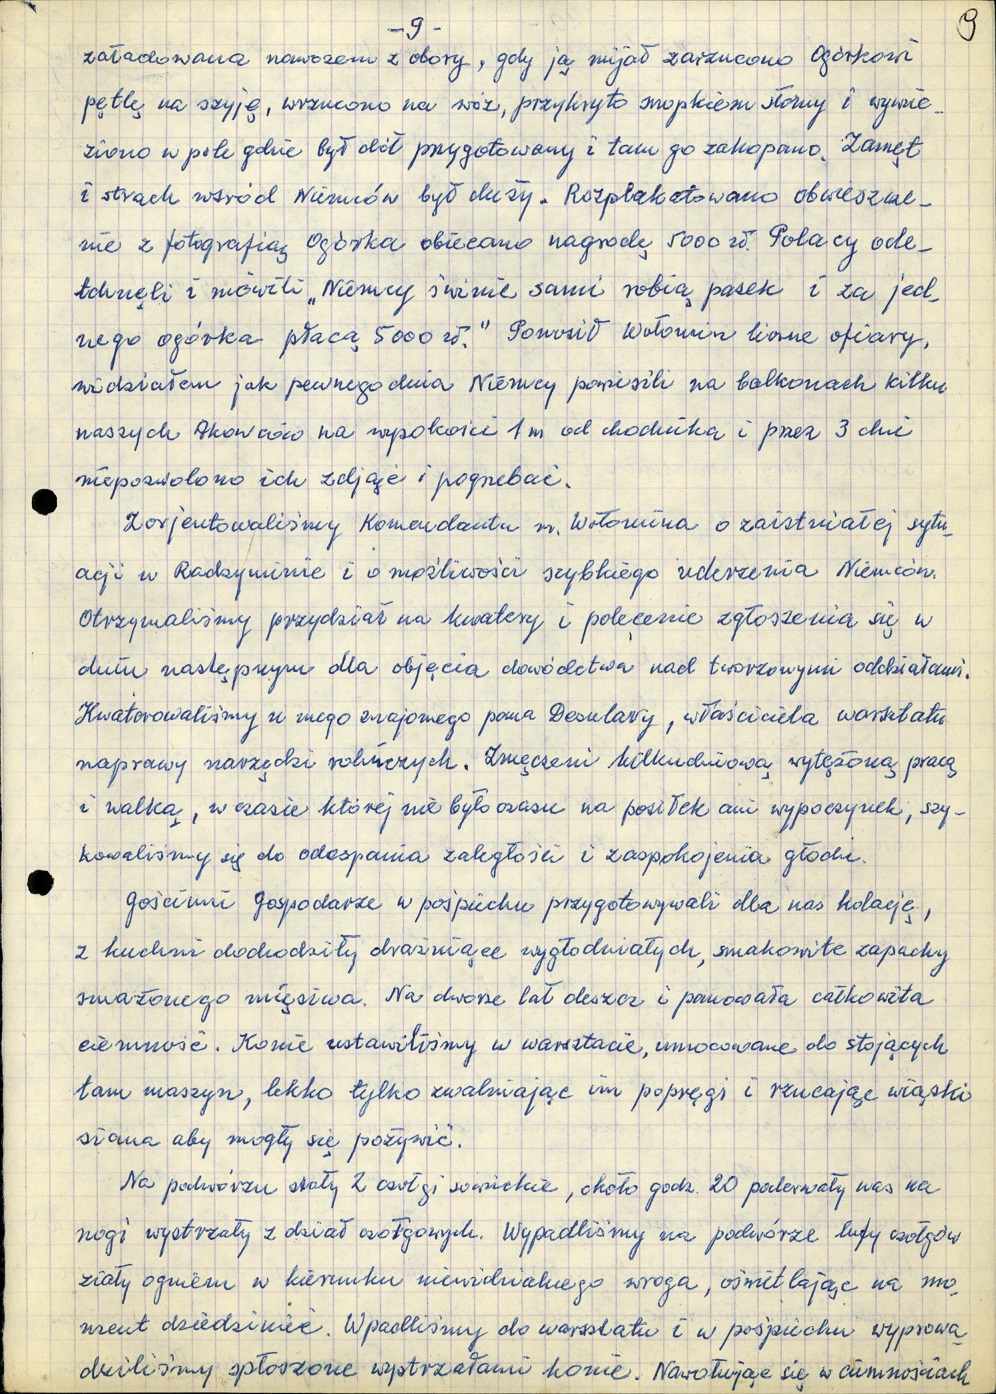 -9-
9
załadowana nawozem z obory, gdy ją mijał zarzucono Ogórkowi
pętlę na szyję, wrzucono na wóz, przykryto snopkiem słomy i wywie-
ziono w pole gdzie był dół przygotowany i tam go zakopano. Zamęt
i strach wśród Niemców był duży. Rozplakatowano obwieszcze-
nie z fotografią Ogórka obiecano nagrodę 5000 zł. Polacy ode-
tchnęli i mówili „Niemcy świnie sami robią pasek i za jed-
nego ogórka płacą 5000 zł." Ponosił Wołomin liczne ofiary,
widziałem jak pewnego dnia Niemcy powiesili na balkonach kilku
naszych Akowców na wysokości 1 m od chodnika i przez 3 dni
niepozwolono ich zdjąć i pogrzebać.
Zorjentowaliśmy Komendanta m. Wołomina o zaistniałej sytu-
acji w Radzyminie i o możliwości szybkiego uderzenia Niemców.
Otrzymaliśmy przydział na kwatery i polecenie zgłoszenia się w
dniu następnym dla objęcia dowództwa nad tworzonymi oddziałami.
Kwaterowaliśmy u mego znajomego pana Desulavy, właściciela warsztatu
naprawy narzędzi rolniczych. Zmęczeni kilkudniową wytężoną pracą
i walką, w czasie której nie było czasu na posiłek ani wypoczynek, szy-
kowaliśmy się do odespania zaległości i zaspokojenia głodu.
Gościnni Gospodarze w pośpiechu przygotowywali dla nas kolację,
z kuchni dochodziły drażniące wygłodniałych, smakowite zapachy
smażonego mięsiwa. Na dworze lał deszcz i panowała całkowita
ciemność. Konie ustawiliśmy w warsztacie, umocowane do stojących
tam maszyn, lekko tylko zwalniając im popręgi i rzucając wiązki
siana aby mogły się pożywić.
Na podwórzu stały 2 czołgi sowieckie, około godz. 20 poderwały nas na
nogi wystrzały z dział czołgowych. Wypadliśmy na podwórze lufy czołgów
ziały ogniem w kierunku niewidzialnego wroga, oświetlając na mo-
ment dziedziniec. Wpadliśmy do warsztatu i w pośpiechu wyprowa-
dziliśmy spłoszone wystrzałami konie. Nawołując się w ciemnościach